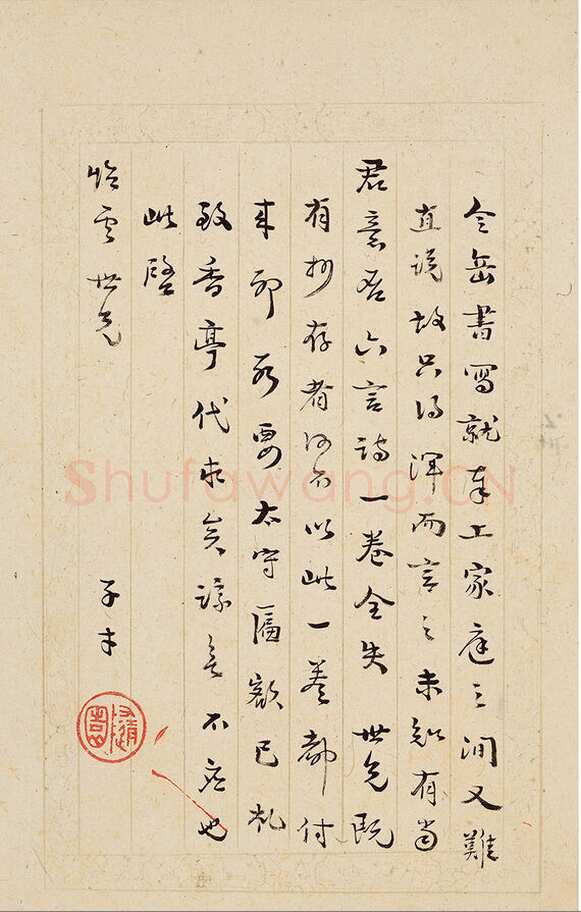 令岳書寫就奉上家庭之間又難
直說故只得渾而言之未知有當
君意否六言詩一卷全失世兄既
有抄存者何不以此一卷都付
來耶所要太守匾額已札
致香亭代求矣諒無不應也
此啓
怡雲世兄
子才
Shufawang.CN